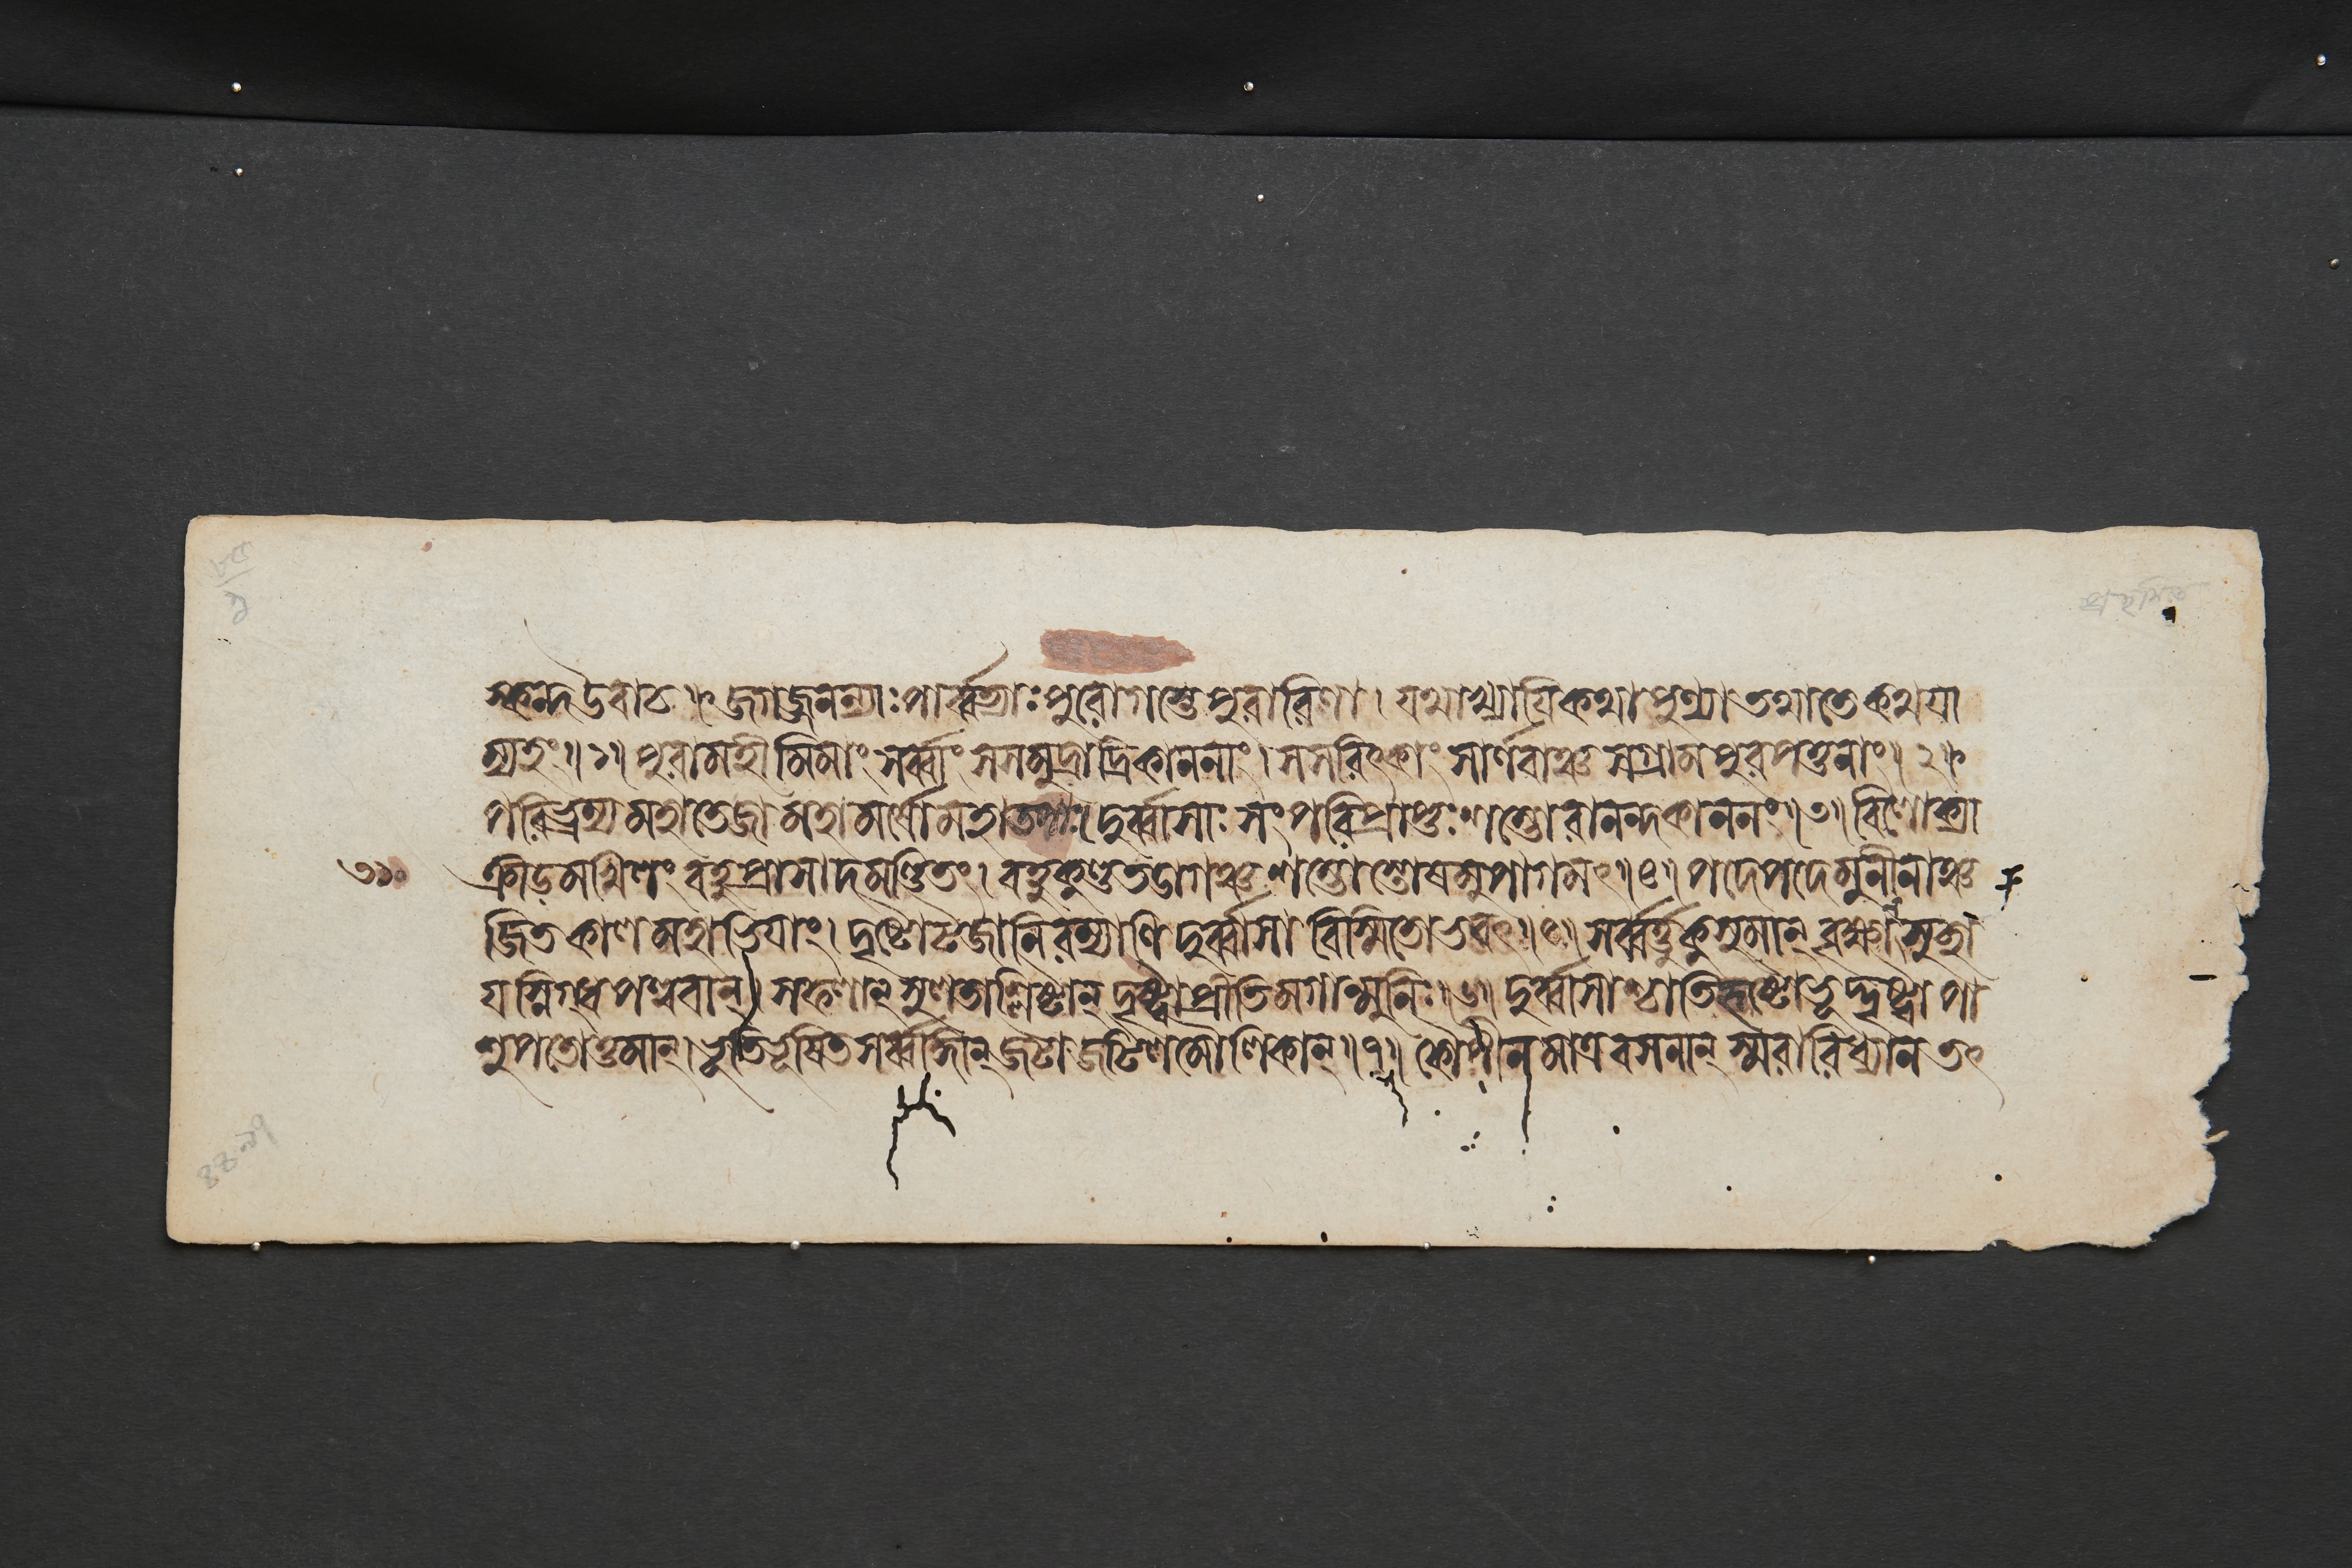 স্কন্দ উবাচ ॥ জগজ্জনন্যাঃ পার্ব্বত্যাঃ পুরোগস্তে পুরারিণা । যথাখ্যায়ি কথা পুণ্যা তথা তে কথয়া
ম্যহং ॥ ১ ॥ পুরা মহীমিমাং সর্ব্বাং সসমুদ্রাদ্রিকাননাং । সসরিৎকাং সার্ণবাঞ্চ সগ্রামপুরপত্তনাং ॥ ২ ॥
পরিভ্রম্য মহাতেজা মহামর্ষো মহাতপাঃ । দুর্ব্বাসাঃ সংপরিপ্রাপ্তঃ শম্ভোরানন্দকাননং ॥ ৩ ॥ বিলোক্যা
৩১০
ক্রীড়মখিলং বহুপ্রাসাদমণ্ডিতং । বহুকুণ্ডতডাগঞ্চ শম্ভোস্তোষমুপাগমৎ ॥ ৪ ॥ পদে পদে মুনীনাঞ্চ
জিতকালমহাভিয়াং । দৃষ্ট্বোটজানি রম্যাণি দুর্ব্বাসা বিস্মিতোভবৎ ॥ ৫ ॥ সর্ব্বর্ত্তুকুসুমান্ বৃক্ষান্ সুচ্ছা
য়স্নিগ্ধপল্লবান্ । সফলান্ সুলতাশ্লিষ্টান্ দৃষ্ট্বা প্রীতিমগান্মুনিঃ ॥ ৬ ॥ দুর্ব্বাসাশ্চাতিহৃষ্টোভূদ্দৃষ্ট্বা পা
শুপতোত্তমান্ । ভূতিভূষিতসর্ব্বাঙ্গান্ জটাজটিলমৌলিকান্ ॥ ৭ ॥ কৌপীনমাত্রবসনান্ স্মরারিধ্যানতৎ